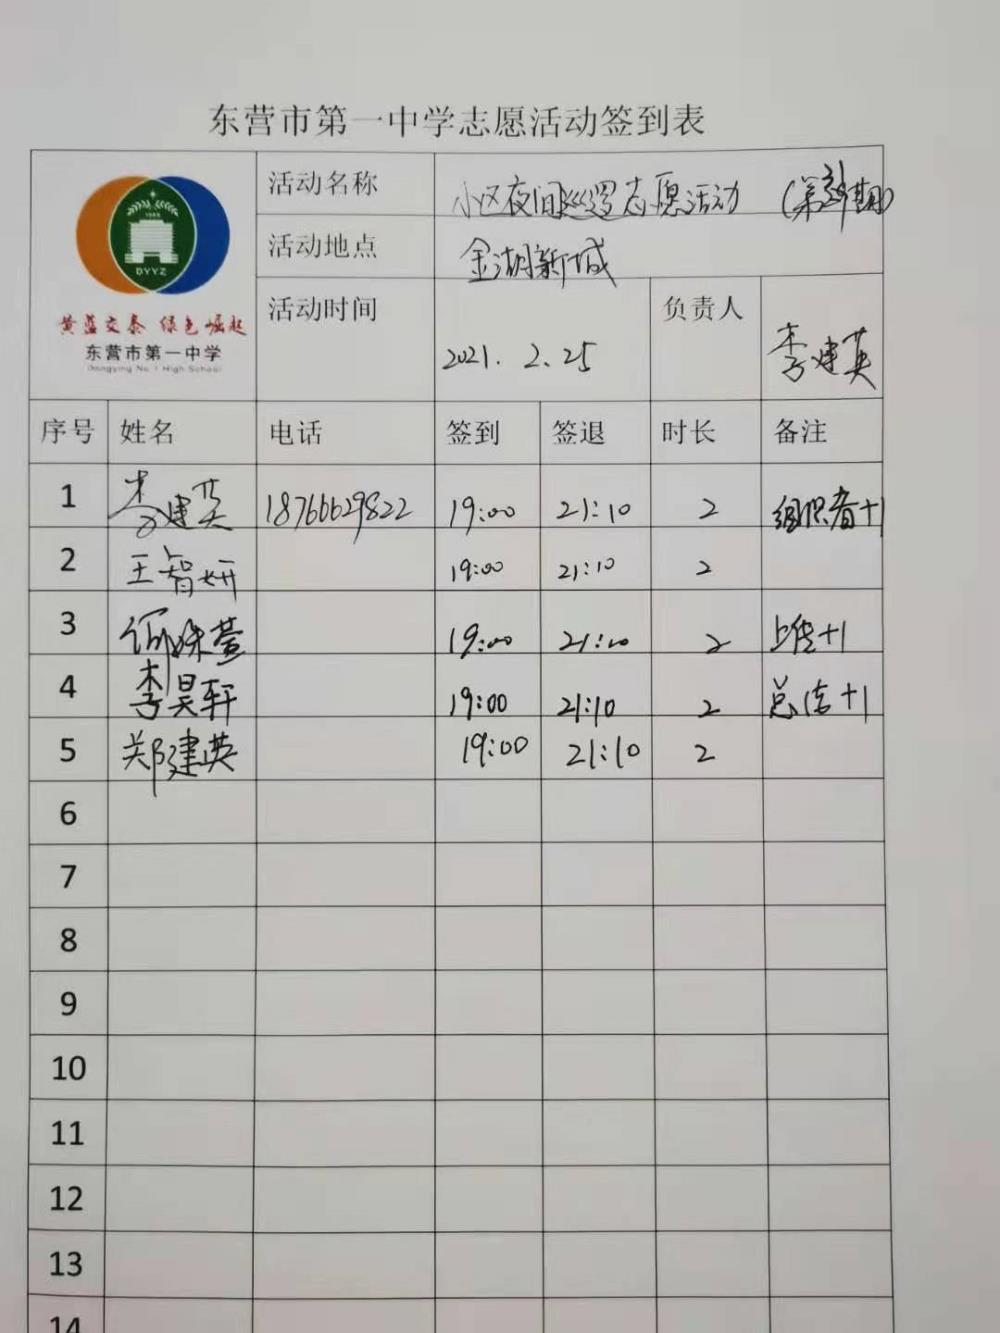 东营市第一中学志愿活动签到表
1952
DYYZ
黄蓝交泰 绿色崛起
东营市第一中学
Dongying No.1 High School
活动名称 小区夜间巡逻志愿活动
活动地点 金湖新城
活动时间 2021.2.25 负责人 李建英
序号 姓名 电话 签到 签退 时长 备注
1 李建英 18766629822 19:00 21:10 2 组织者+1
2 王智妍 19:00 21:10 2
3 19:00 21:10 2 上传+1
4 李昊轩 19:00 21:10 2 总结+1
5 郑建英 19:00 21:10 2
6
7
8
9
10
11
12
13
14